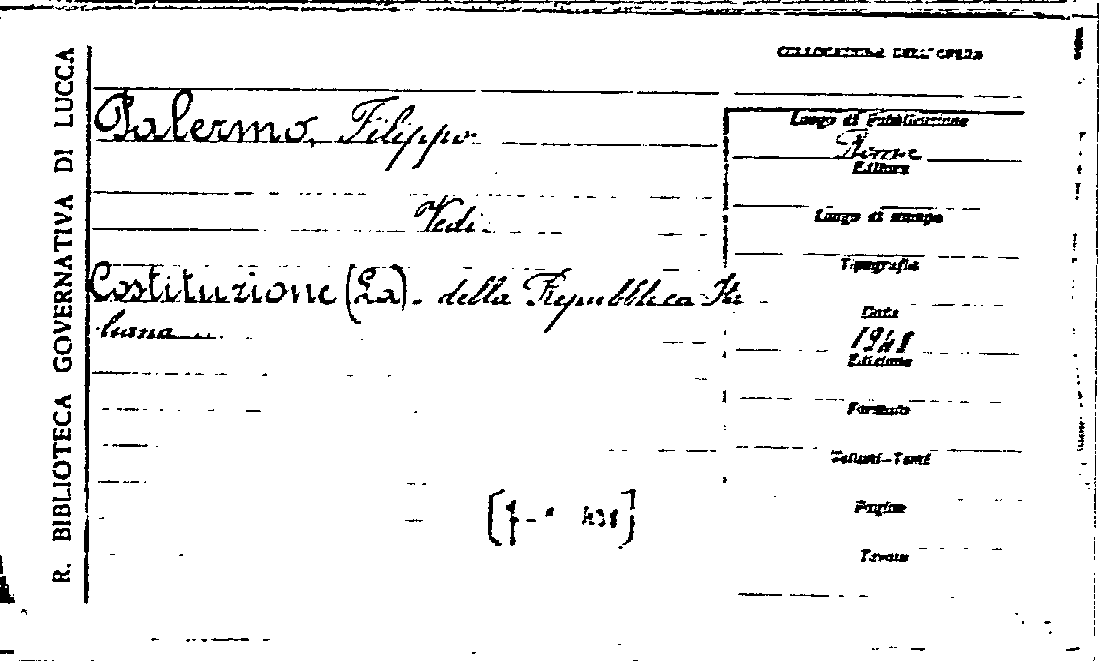 R. BIBLIOTECA GOVERNATIVA DI LUCCA
COLLOCAZIONE DELL'OPERA
Palermo, Filippo
Vedi
Costituzione (La). della Repubblica Ita
liana
Luogo di pubblicazione
Roma
Editore
Luogo di stampa
Tipografia
Data
1948
Edizione
Formato
Volumi-Tomi
Pagine
Tavole